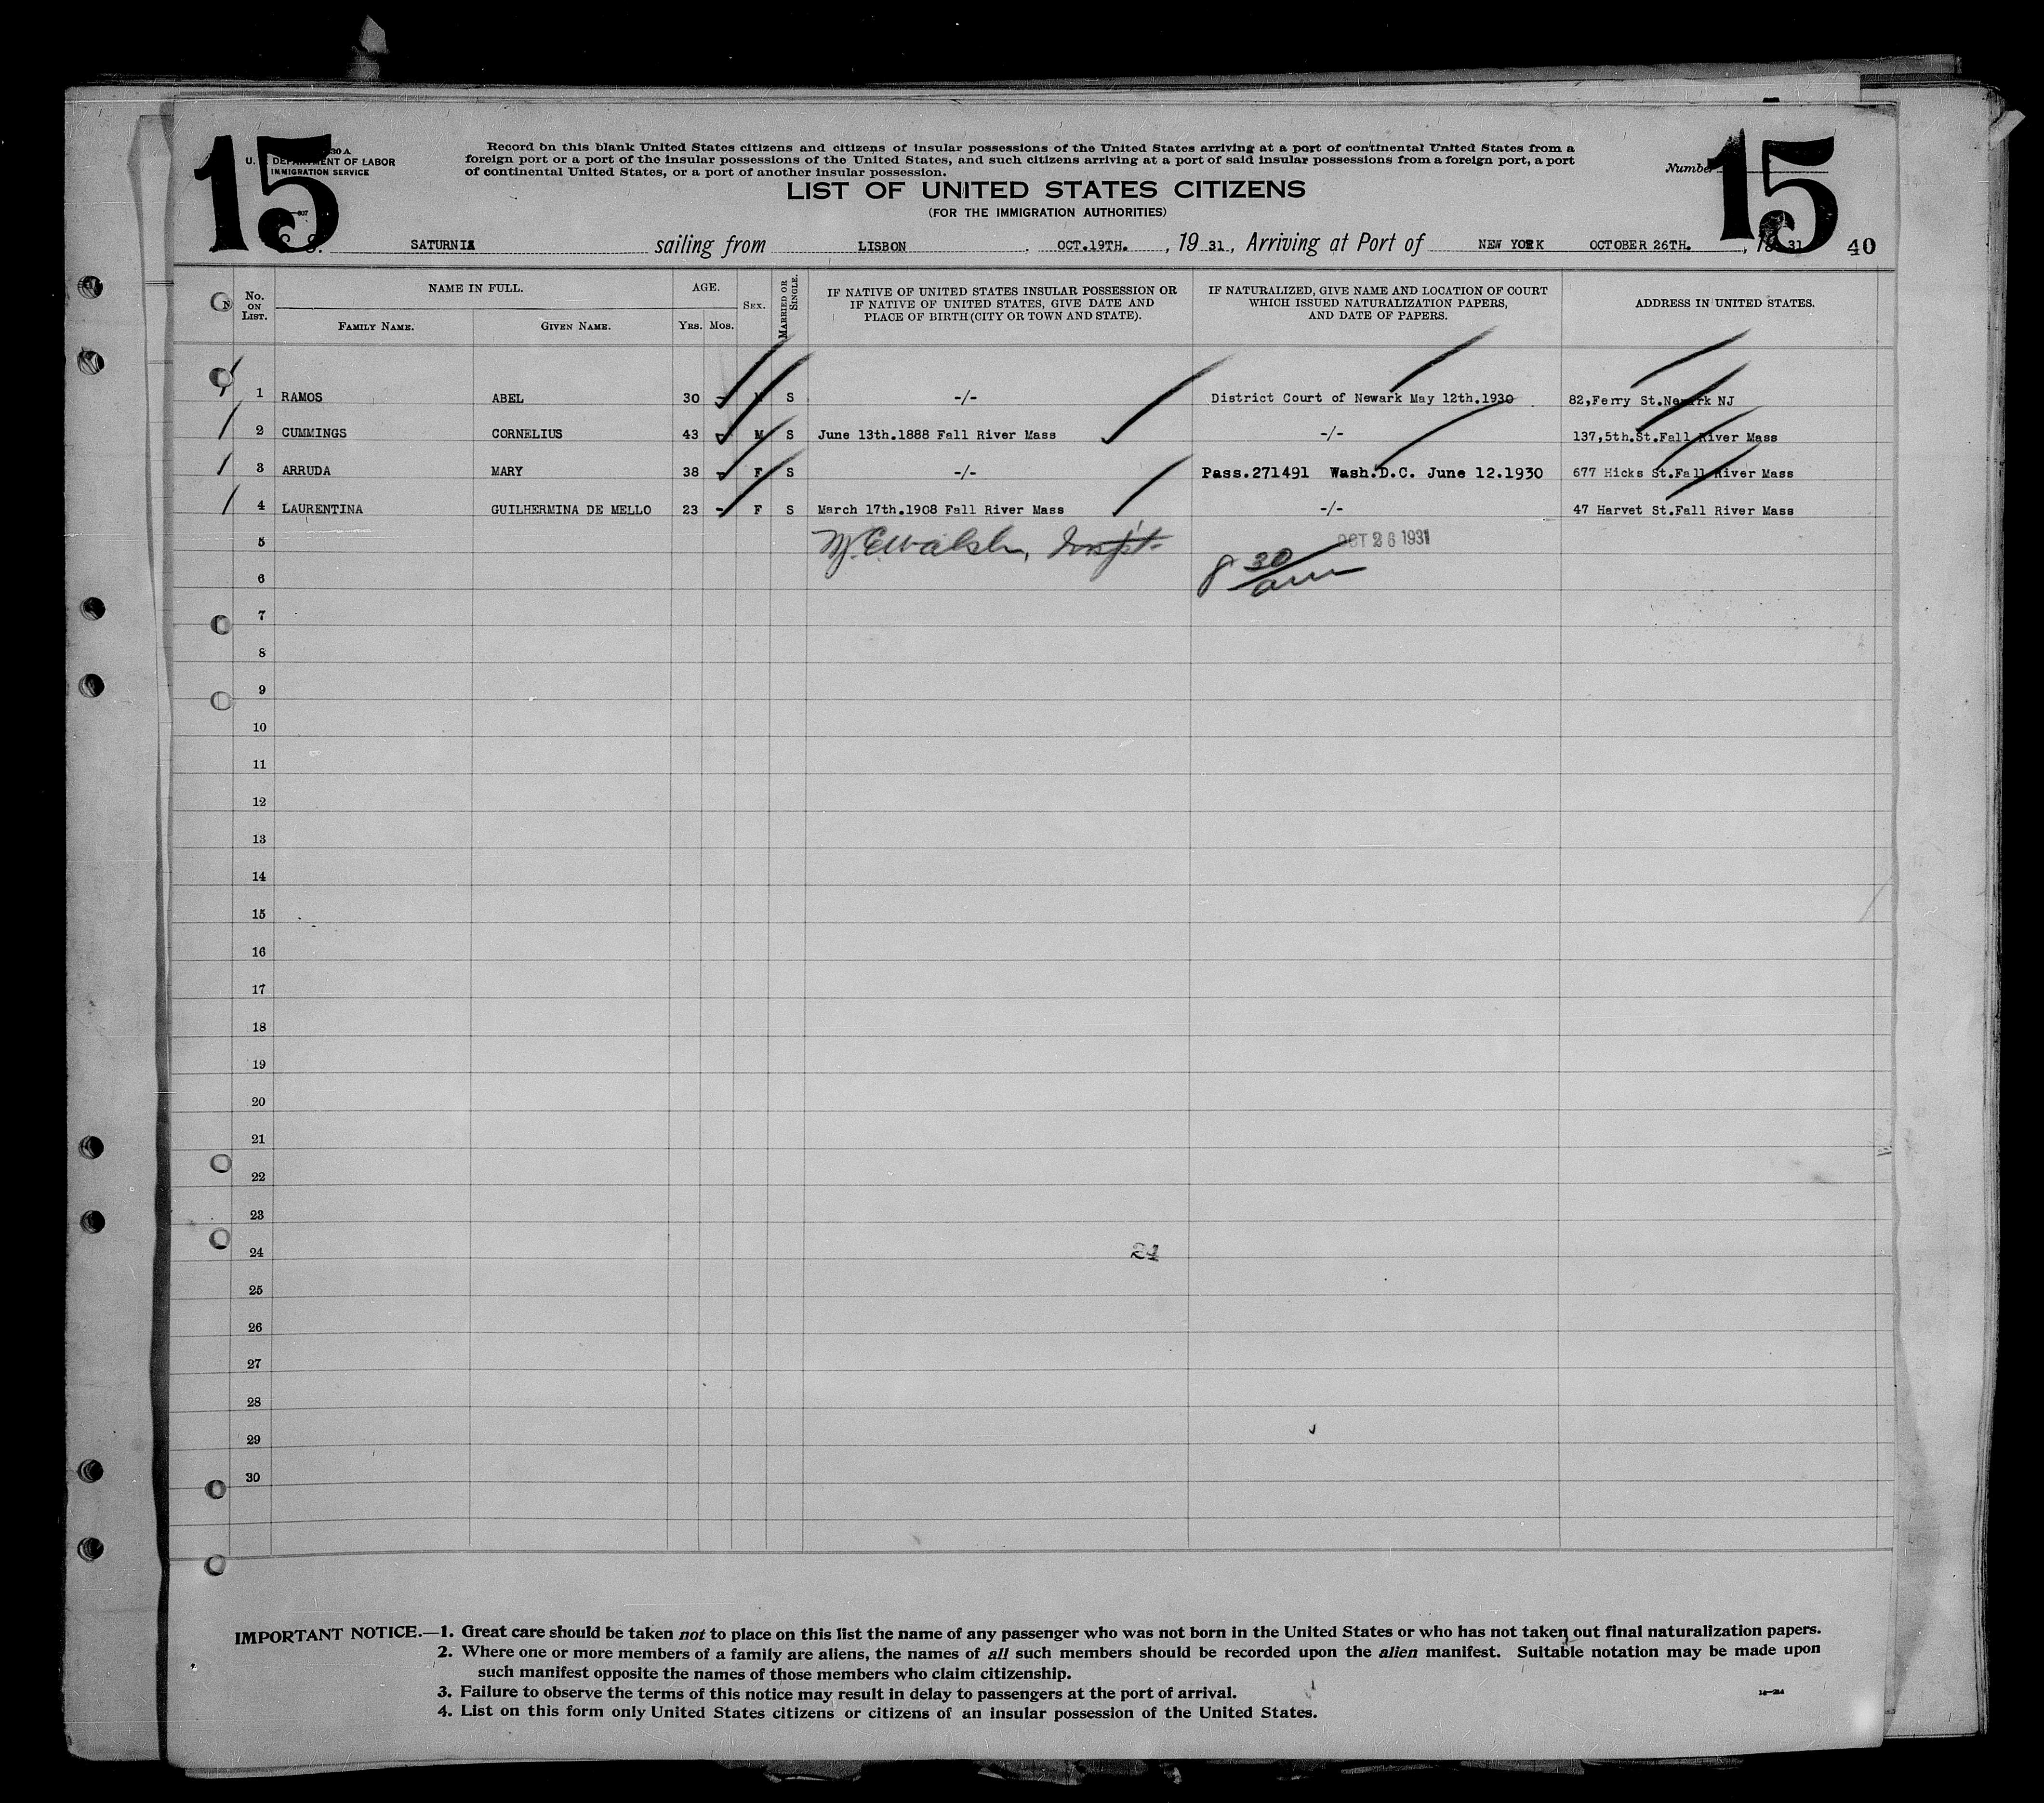 15
30 A
U. S. DEPARTMENT OF LABOR
IMMIGRATION SERVICE
Record on this blank United States citizens and citizens of insular possessions of the United States arriving at a port of continental United States from a
foreign port or a port of the insular possessions of the United States, and such citizens arriving at a port of said insular possessions from a foreign port, a port
of continental United States, or a port of another insular possession.
Number
15
LIST OF UNITED STATES CITIZENS
(FOR THE IMMIGRATION AUTHORITIES)
S. S. SATURNIA sailing from LISBON , OCT.19TH. , 19 31 , Arriving at Port of NEW YORK OCTOBER 26TH. , 19 31 40
No. ON LIST. NAME IN FULL. AGE. SEX. MARRIED OR SINGLE. IF NATIVE OF UNITED STATES INSULAR POSSESSION OR IF NATIVE OF UNITED STATES, GIVE DATE AND PLACE OF BIRTH (CITY OR TOWN AND STATE). IF NATURALIZED, GIVE NAME AND LOCATION OF COURT WHICH ISSUED NATURALIZATION PAPERS, AND DATE OF PAPERS. ADDRESS IN UNITED STATES.
FAMILY NAME. GIVEN NAME. YRS. MOS.
1 RAMOS ABEL 30 - M S -/- District Court of Newark May 12th.1930 82,Ferry St.Newark NJ
2 CUMMINGS CORNELIUS 43 - M S June 13th.1888 Fall River Mass -/- 137,5th.St.Fall River Mass
3 ARRUDA MARY 38 - F S -/- Pass.271491 Wash.D.C. June 12.1930 677 Hicks St.Fall River Mass
4 LAURENTINA GUILHERMINA DE MELLO 23 - F S March 17th.1908 Fall River Mass -/- 47 Harvet St.Fall River Mass
5 Walsh, Inspt. OCT 26 1931
6 8 30/am
7
8
9
10
11
12
13
14
15
16
17
18
19
20
21
22
23
24 24
25
26
27
28
29
30
IMPORTANT NOTICE.—1. Great care should be taken not to place on this list the name of any passenger who was not born in the United States or who has not taken out final naturalization papers.
2. Where one or more members of a family are aliens, the names of all such members should be recorded upon the alien manifest. Suitable notation may be made upon
such manifest opposite the names of those members who claim citizenship.
3. Failure to observe the terms of this notice may result in delay to passengers at the port of arrival.
4. List on this form only United States citizens or citizens of an insular possession of the United States.